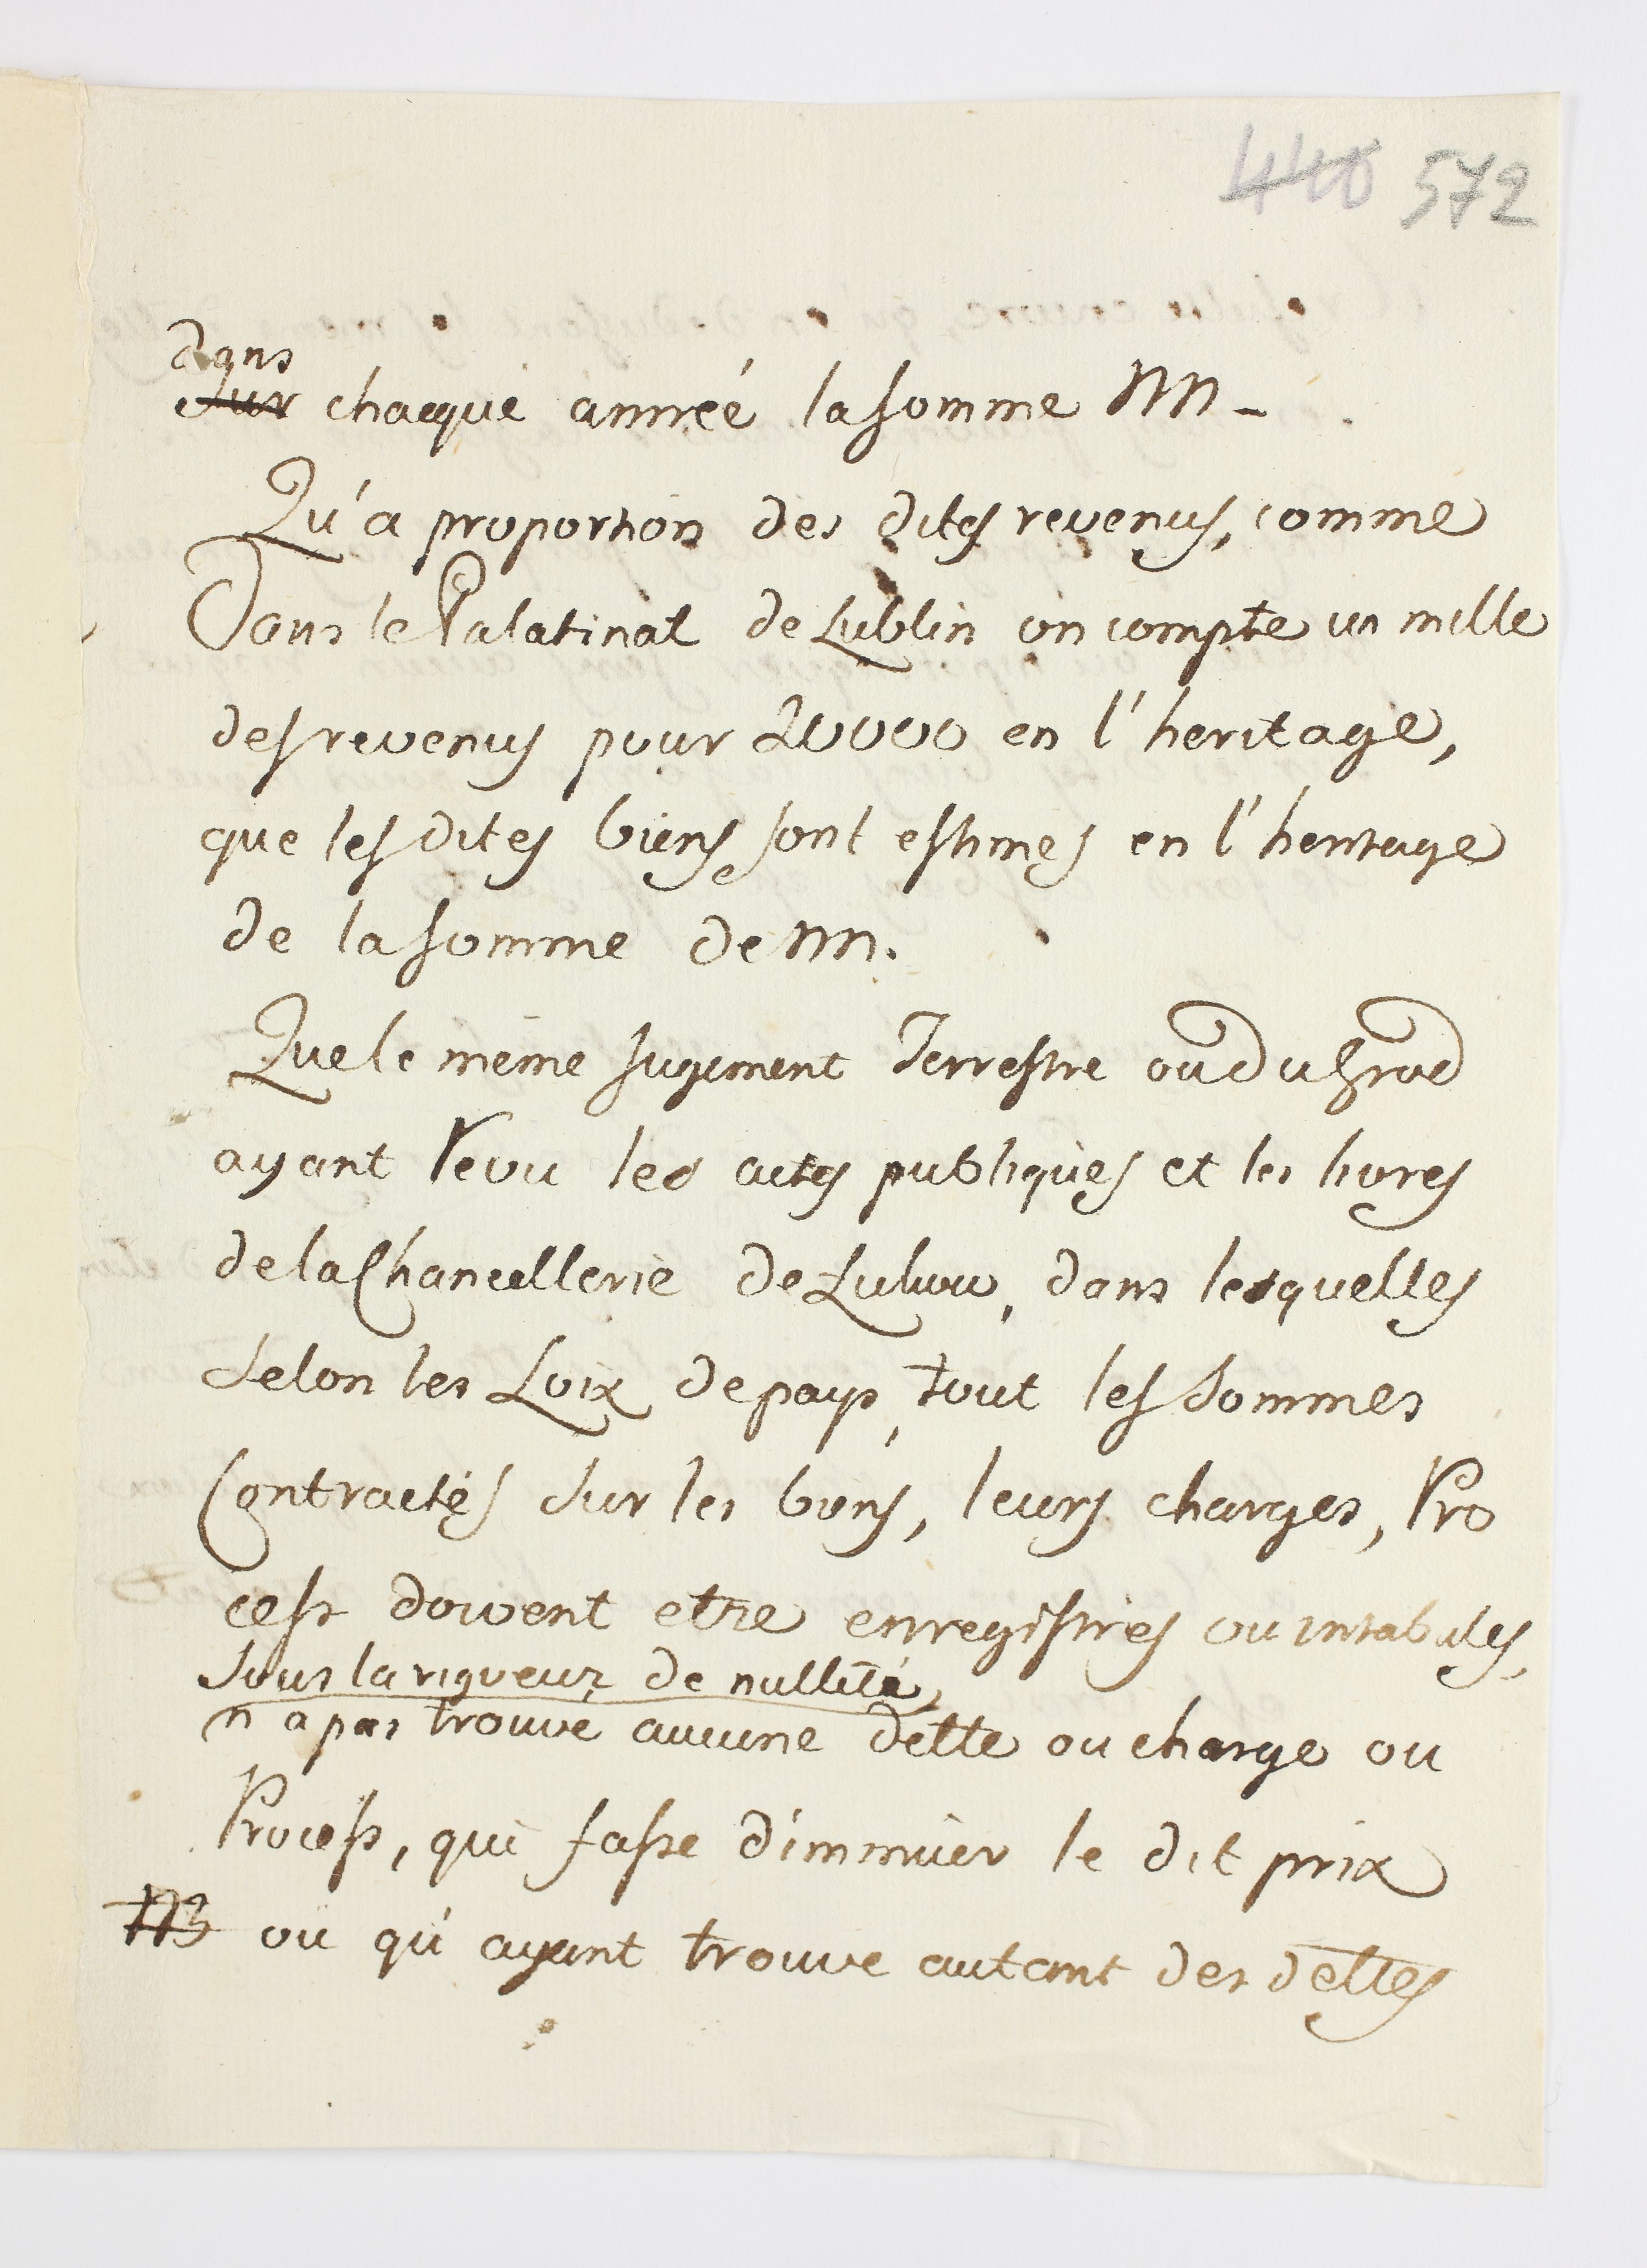 440 572
dans
Sur chaque année la somme NN -
Qu'a proportion des dites revenus, comme
Dans le Palatinat de Lublin on compte un mille
des revenus pour 20000 en l'heritage,
que les dites biens sont estimes en l'heritage
de la somme de NN.
Que le même Jugement Terrestre ou du Grod
ayant revu les actes publiques et les livres
de la Chancellerie de Lukow, dans lesquelles
selon les Loix de pays, tout les sommes
Contractés sur les biens, leurs charges, Pro
cess doivent etre enregistres ou intabules,
sous la rigueur de nullité,
n'a pas trouve aucune dette ou charge ou
Process, qui fasse dimmuer le dit prix
ou qu'ayant trouve autant des dettes